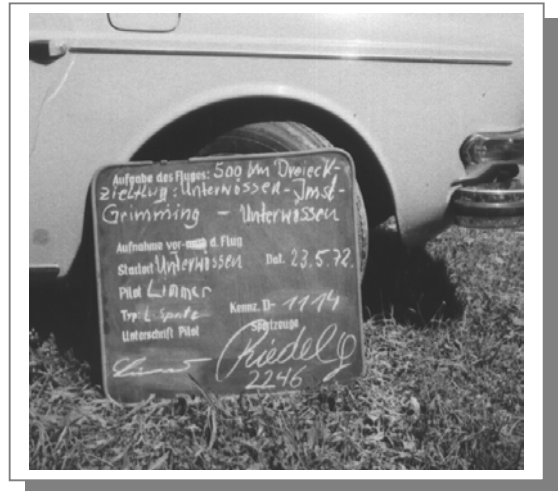 Aufgabe des Fluges: 500 km Dreieck-
zielflug: Unterwössen-Imst-
Grimming - Unterwössen
Aufnahme vor d. Flug
Startort Unterwössen Dat. 23.5.72.
Pilot Limmer
Typ: L-Spatz Kennz. D-1114
Unterschrift Pilot Sportzeuge
Riedel
2246